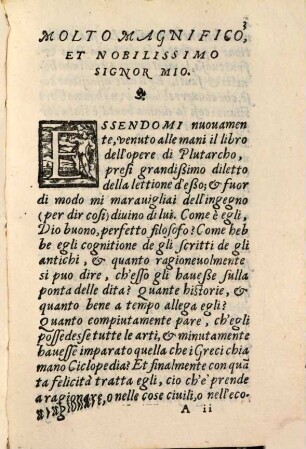 3
MOLTO MAGNIFICO,
ET NOBILISSIMO
SIGNOR MIO.
ESSENDOMI nuouamen
te, venuto alle mani il libro
dell'opere di Plutarcho,
presi grandißimo diletto
della lettione d'eßo; & fuor
di modo mi marauigliai dell'ingegno
(per dir cosi) diuino di lui. Come è egli,
Dio buono, perfetto filosofo? Come heb
be egli cognitione de gli scritti de gli
antichi, & quanto ragioneuolmente
si puo dire, ch'esso gli haueße sulla
ponta delle dita? Quante historie, &
quanto bene a tempo allega egli?
Quanto compiutamente pare, ch'egli
possedesse tutte le arti, & minutamente
hauesse imparato quella che i Greci chia
mano Ciclopedia? Et finalmente con quā
ta felicità tratta egli, cio ch'e prende
a ragionare, o nelle cose ciuili, o nell'eco-
A ii